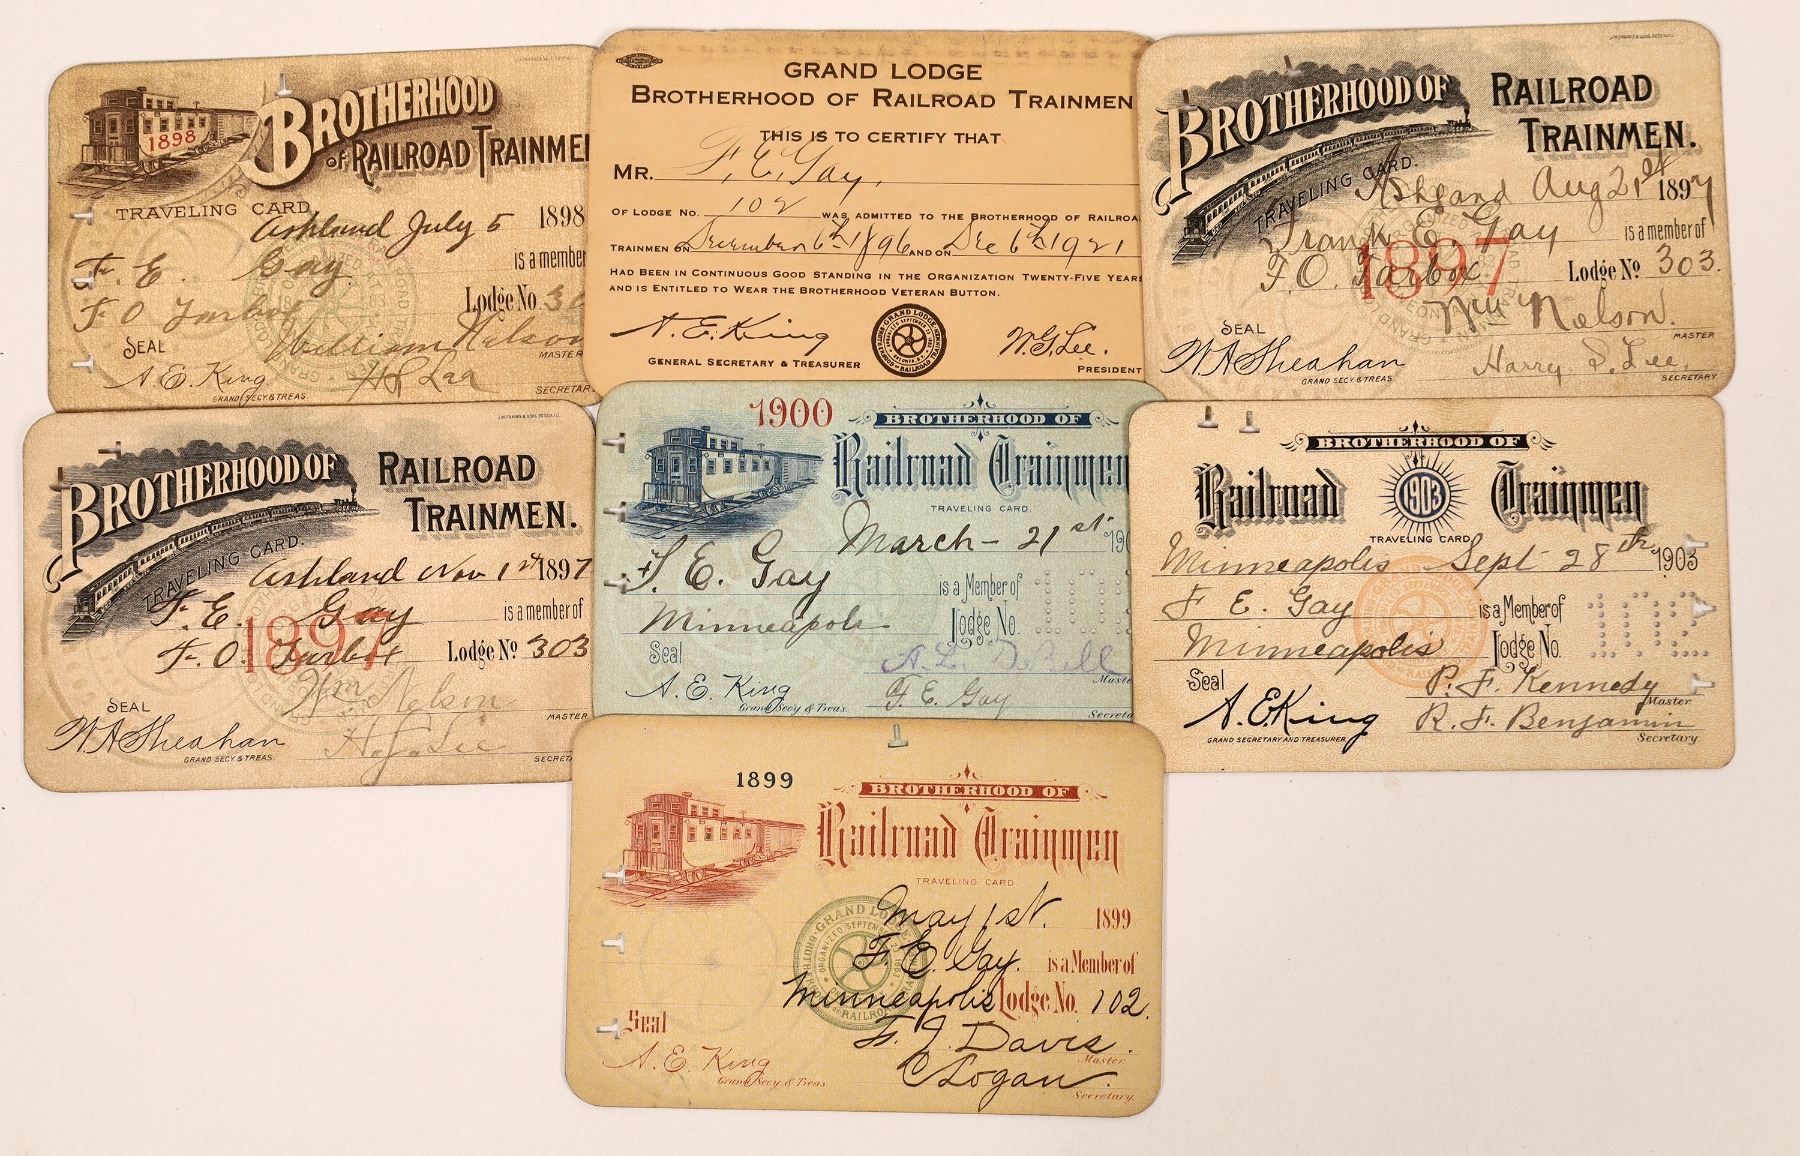 1898
BROTHERHOOD
OF RAILROAD TRAINME
TRAVELING CARD
Ashland July 5 1898
F. E. Gay is a member
F O Tarbox Lodge No. 30
William Nelson
SEAL MASTER
A. E. King H S Lee
GRAND SECY & TREAS. SECRETAR
GRAND LODGE
BROTHERHOOD OF RAILROAD TRAINMEN
THIS IS TO CERTIFY THAT
MR. F. E. Gay,
OF LODGE NO. 102 WAS ADMITTED TO THE BROTHERHOOD OF RAILROA
TRAINMEN ON December 6th 1896 AND ON Dec 6th 1921
HAD BEEN IN CONTINUOUS GOOD STANDING IN THE ORGANIZATION TWENTY-FIVE YEARS
AND IS ENTITLED TO WEAR THE BROTHERHOOD VETERAN BUTTON.
A. E. King W. G. Lee.
GENERAL SECRETARY & TREASURER PRESIDENT
BROTHERHOOD OF RAILROAD
TRAINMEN.
TRAVELING CARD.
Ashland Aug 21st 1897
Frank E. Gay is a member of
1897
F. O. Tarbox Lodge No 303.
Wm Nelson.
SEAL MASTER
W A Sheahan Harry S. Lee.
GRAND SECY & TREAS. SECRETARY.
BROTHERHOOD OF RAILROAD
TRAINMEN.
TRAVELING CARD.
Ashland Nov 1st 1897
F. E. Gay is a member of
1897
F. O. Tarbox Lodge No 303
Wm Nelson
SEAL MASTER
W A Sheahan H. S. Lee
GRAND SECY & TREAS. SECRET
1900
BROTHERHOOD OF
Railroad Trainmen
TRAVELING CARD.
March - 21st 190
F. E. Gay is a Member of
Minneapolis Lodge No. 102
Seal A. L. DeBell
Maste
A. E. King F. E. Gay
Grand Secy & Treas. Secreta
BROTHERHOOD OF
Railroad 1903 Trainmen
TRAVELING CARD
Minneapolis Sept 28th 1903
F E. Gay is a Member of
Minneapolis Lodge No. 102
Seal P. F. Kennedy
Master
A. E. King R. F. Benjamin
GRAND SECRETARY AND TREASURER Secretary.
1899
BROTHERHOOD OF
Railroad Trainmen
TRAVELING CARD
May 1st. 1899
F. E. Gay. is a Member of
Minneapolis Lodge No. 102.
Seal F. J. Davis.
Master
A. E. King C Logan.
Grand Secy & Treas Secretary.